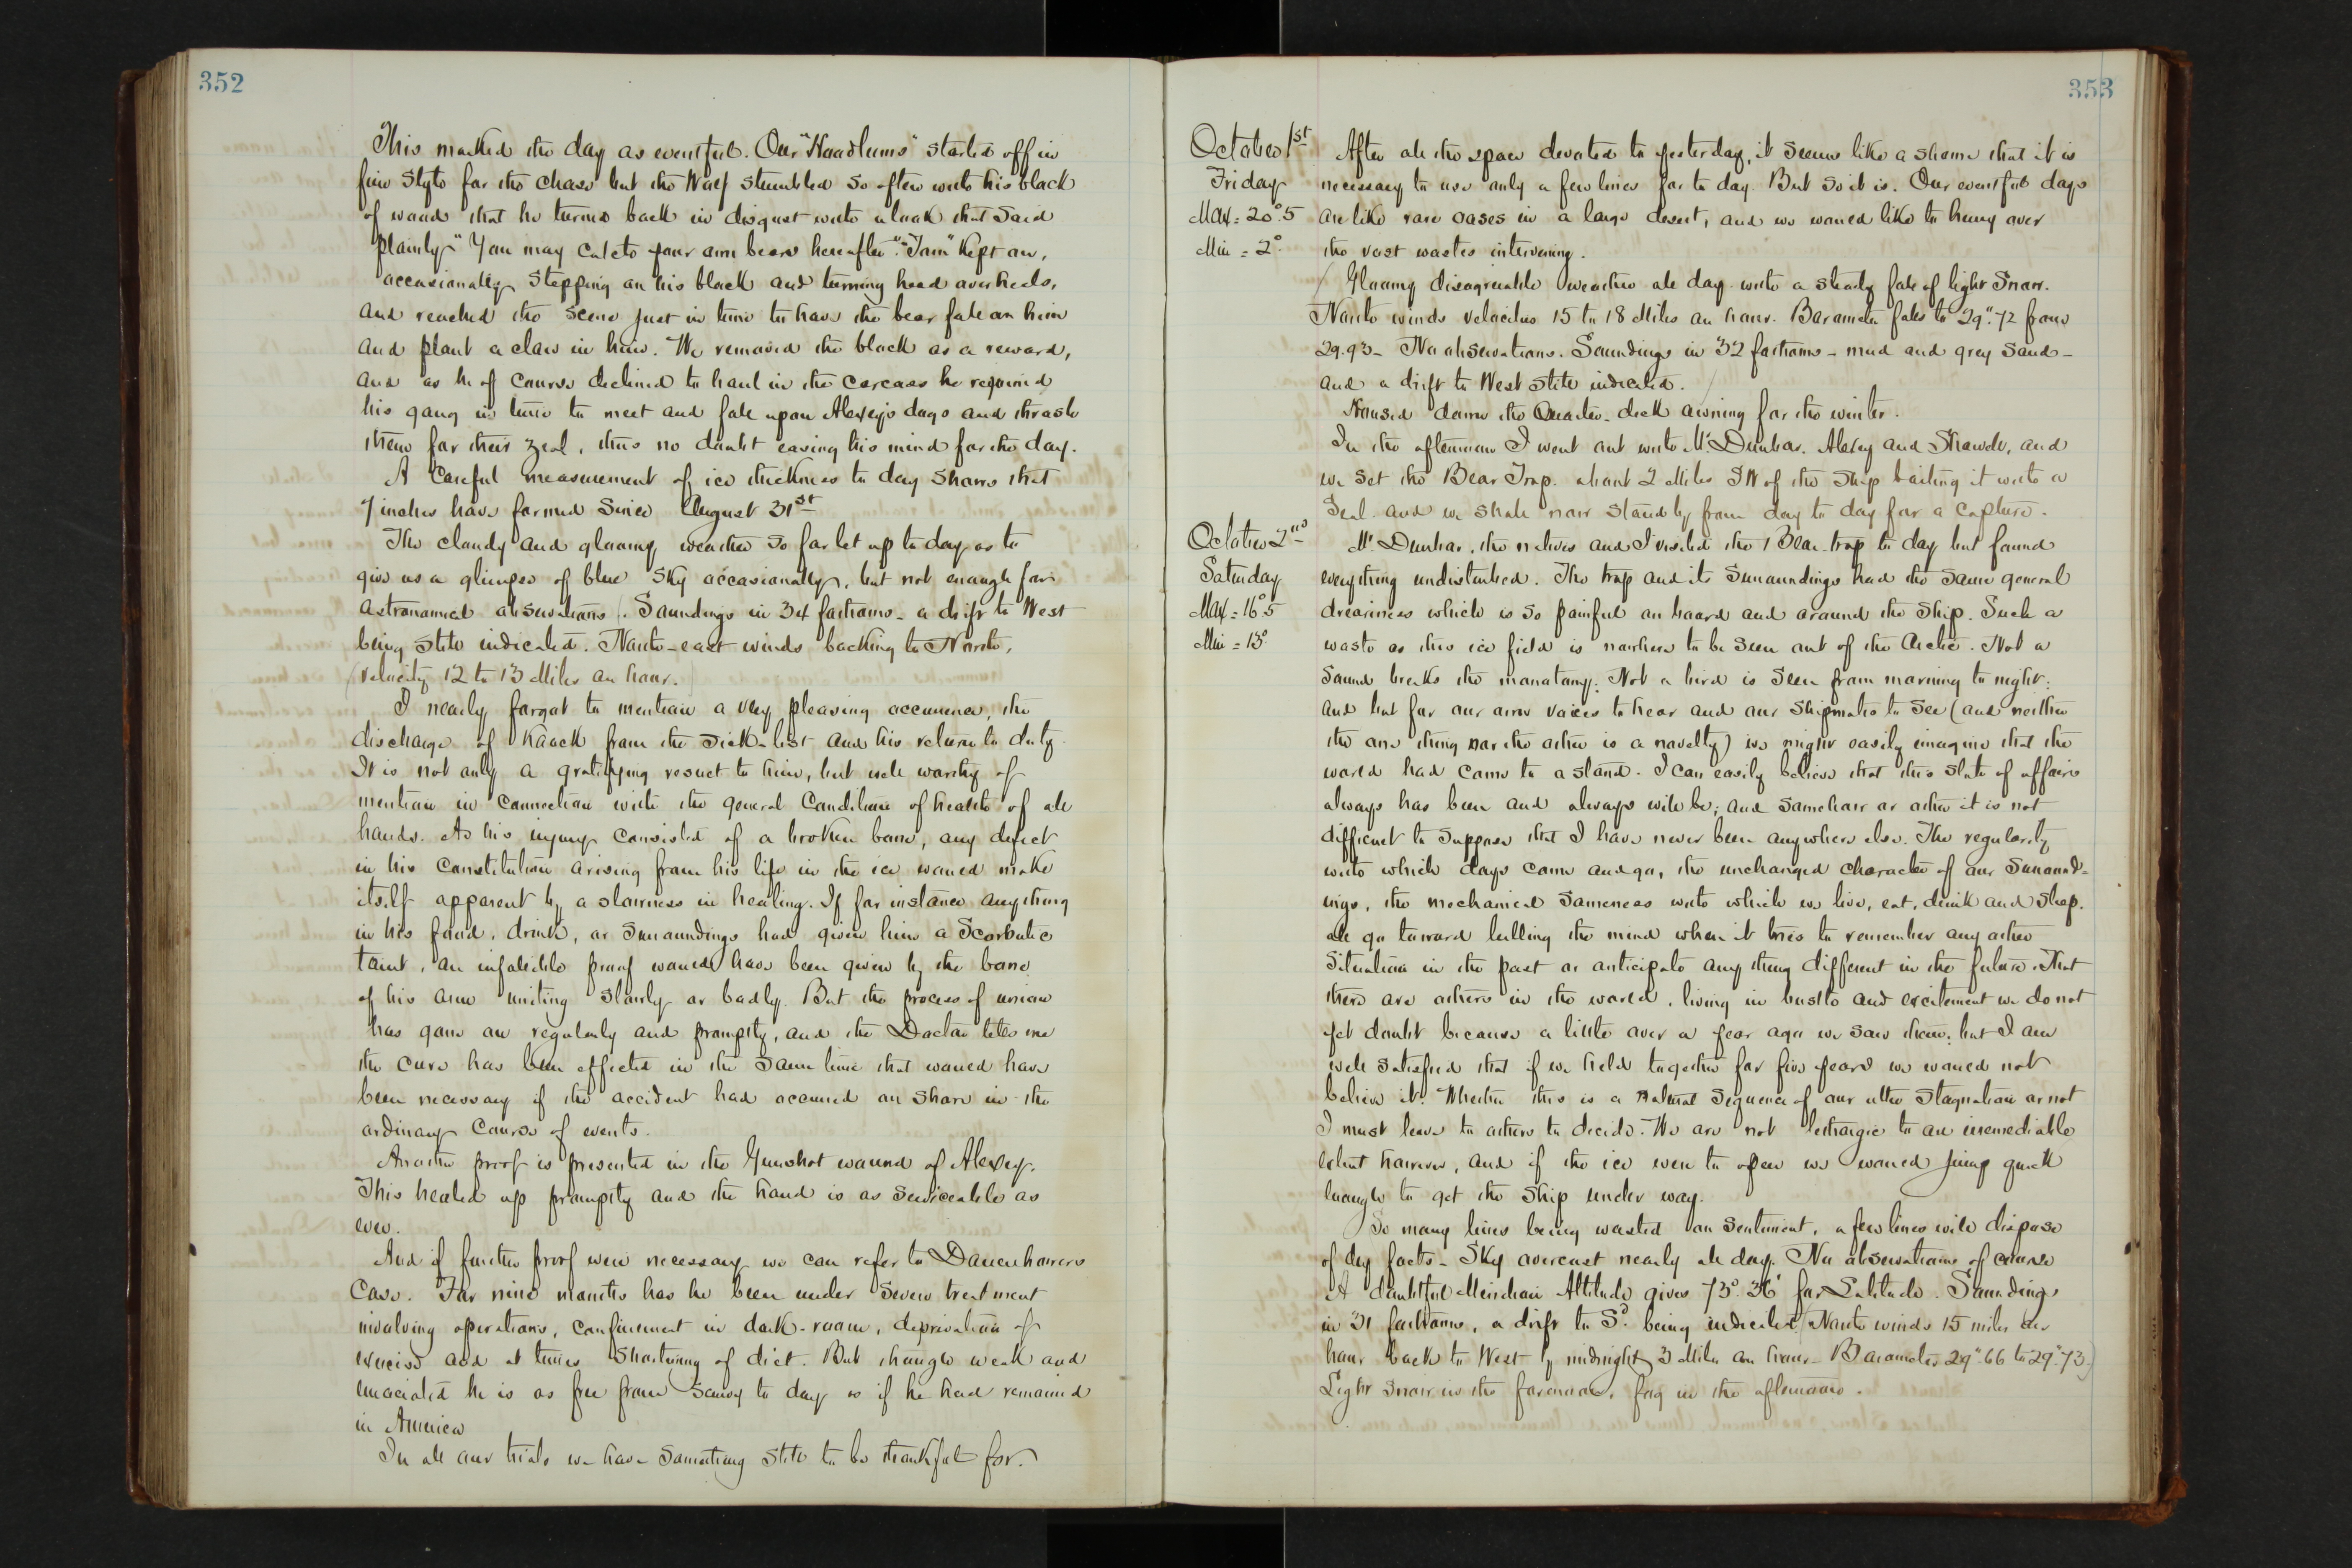 352
This marked the day as eventful. Our "Hoodlums" started off in
fine style for the chase but the Wolf stumbled so often with his block
of wood that he turned back in disgust with a look that said
plainly "You may catch your own bears hereafter". "Tom" kept on,
occasionally stepping on his block and turning head over heels,
and reached the scene just in time to have the bear fall on him
and plant a claw in him. We removed the block as a reward,
and as he of course declined to haul in the carcass he rejoined
his gang in time to meet and fall upon Alexey's dogs and thrash
them for their zeal, thus no doubt easing his mind for the day.
A careful measurement of ice thickness to day shows that
7 inches have formed since August 31st
The cloudy and gloomy weather so far let up to day as to
give us a glimpse of blue sky occasionally, but not enough for
astronomical observations. Soundings in 34 fathoms - a drift to West
being still indicated. North-east winds backing to North,
velocity 12 to 13 miles an hour.
I nearly forgot to mention a very pleasing occurrence, the
discharge of Kaack from the sick-list and his return to duty.
It is not only a gratifying result to him, but well worthy of
mention in connection with the general condition of health of all
hands. As his injury consisted of a broken bone, any defect
in his constitution arising from his life in the ice would make
itself apparent by a slowness in healing. If for instance anything
in his food, drink, or surroundings had given him a Scorbutic
taint, an infallible proof would have been given by the bone
of his arm uniting slowly or badly. But the process of union
has gone on regularly and promptly, and the Doctor tells me
the cure has been effected in the same time that would have
been necessary if the accident had occurred on shore in the
ordinary course of events.
Another proof is presented in the Gunshot wound of Alexey.
This healed up promptly and the hand is as serviceable as
ever.
And if further proof were necessary we can refer to Danenhower's
case. For nine months has he been under severe treatment
involving operations, confinement in dark-room, deprivation of
exercise and at times shortening of diet. But though weak and
emaciated he is as free from scurvy to day as if he had remained
in America
In all our trials we have something still to be thankful for.
353
October 1st
Friday
Max = 20°.5
Min = 2°
After all the space devoted to yesterday, it seems like a shame that it is
necessary to use only a few lines for to day. But so it is. Our eventful days
are like rare oases in a large desert, and we would like to hurry over
the vast wastes intervening.
Gloomy disagreeable weather all day with a steady fall of light snow.
North winds velocities 15 to 18 miles an hour. Barometer falls to 29".72 from
29.93 - No observations. Soundings in 32 fathoms - mud and grey sand -
and a drift to West still indicated.
Housed down the Quarter-deck awning for the winter.
In the afternoon I went out with Mr Dunbar, Alexey and and
we set the Bear Trap about 2 miles SW of the ship baiting it with a
Seal. and we shall now stand by from day to day for a capture.
October 2nd
Saturday
Max = 16°.5
Min = 13°
Mr Dunbar, the natives and I visited the Bear-trap to day but found
everything undisturbed. The trap and its surroundings had the same general
dreariness which is so painful on board and around the ship. Such a
waste as this ice field is nowhere to be seen out of the Arctic. Not a
sound breaks the monotony. Not a bird is seen from morning to night:
and but for our own voices to hear and our shipmates to see (and neither
the one thing nor the other is a novelty) we might easily imagine that the
world had come to a stand. I can easily believe that this state of affairs
always has been and always will be; and somehow or other it is not
difficult to suppose that I have never been anywhere else. The regularity
with which days come and go, the unchanged character of our surround-
ings, the mechanical sameness with which we live, eat, drink and sleep,
all go toward lulling the mind when it tries to remember any other
situation in the past or anticipate any thing different in the future. That
there are others in the world, living in bustle and excitement we do not
yet doubt because a little over a year ago we saw them; but I am
well satisfied that if we held together for five years we would not
believe it. Whether this is a natural sequence of our utter stagnation or not
I must leave to others to decide. We are not lethargic to an irremediable
extent however, and if the ice were to open we would jump quick
enough to get the ship under way.
So many lines being wasted on sentiment, a few lines will dispose
of dry facts - Sky overcast nearly all day. No observations of course
A doubtful Meridian Altitude gives 73° 36' for Latitude. Soundings
in 31 fathoms, a drift to Sd being indicated (North winds 15 miles an
hour back to West by midnight 3 miles an hour - Barometer 29".66 to 29".73.)
Light snow in the forenoon, fog in the afternoon.